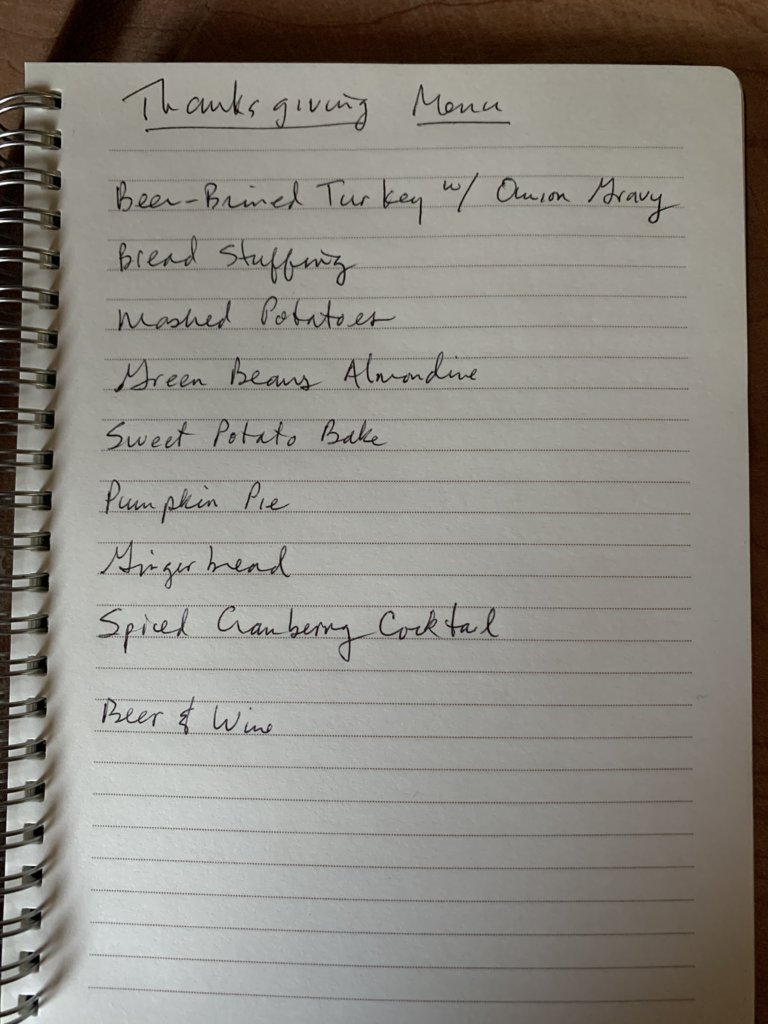 Thanksgiving Menu
Beer-Brined Turkey w/ Onion Gravy
Bread Stuffing
Mashed Potatoes
Green Beans Almondine
Sweet Potato Bake
Pumpkin Pie
Gingerbread
Spiced Cranberry Cocktail
Beer & Wine